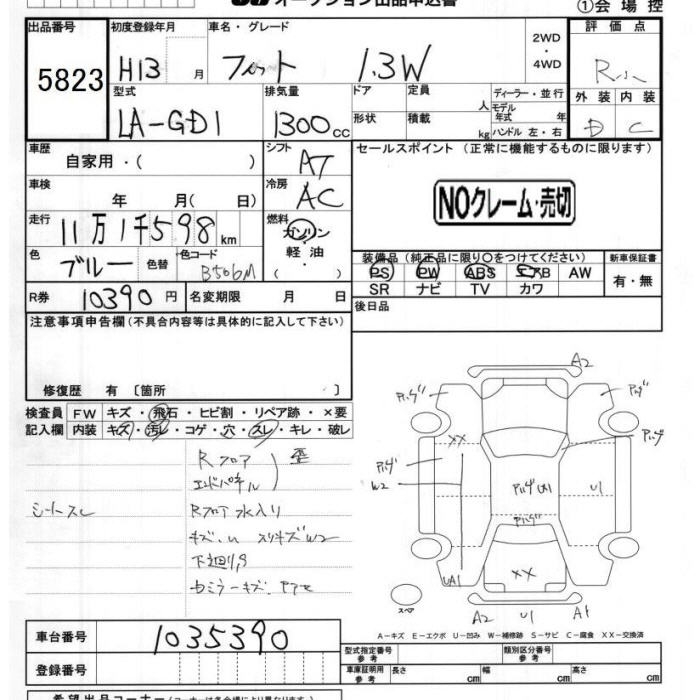 オークション出品申込書
①会場控
出品番号 初度登録年月 車名・グレード 2WD・4WD 評価点
5823 H13 月 フィット 1.3W R
型式 排気量 ドア 定員 人 ディーラー・並行 外装 内装
LA-GD1 1300cc 形状 積載 kg モデル年式 年 ハンドル 左・右 D C
車歴 シフト セールスポイント (正常に機能するものに限ります)
自家用・( ) AT
車検 冷房
年 月( 日) AC NOクレーム・売切
走行 11万1千598km 燃料 ガソリン・軽油・( )
色 ブルー 色替 色コード B506M
装備品 (純正品に限り○をつけてください) 新車保証書
PS PW ABS エアB AW 有・無
SR ナビ TV カワ
R券 10390円 名変期限 月 日 後日品
注意事項申告欄 (不具合内容等は具体的に記入して下さい)
修復歴 有 〔箇所 〕
検査員記入欄 FW キズ・飛石・ヒビ割・リペア跡・×要
内装 キズ・汚レ・コゲ・穴・スレ・キレ・破レ
Rフロア 歪
エンドパネル
シートスレ Rフロア水入り
キズ.U スリキズW2
下廻りS
A2
XX
W2
U1
UA1
XX
A2 U1 A1
スペア
A-キズ E-エクボ U-凹み W-補修跡 S-サビ C-腐食 XX-交換済
車台番号 1035390
登録番号
型式指定番号 参考 類別区分番号 参考
車庫証明用 参考 長さ cm 幅 cm 高さ cm
希望出品コーナー